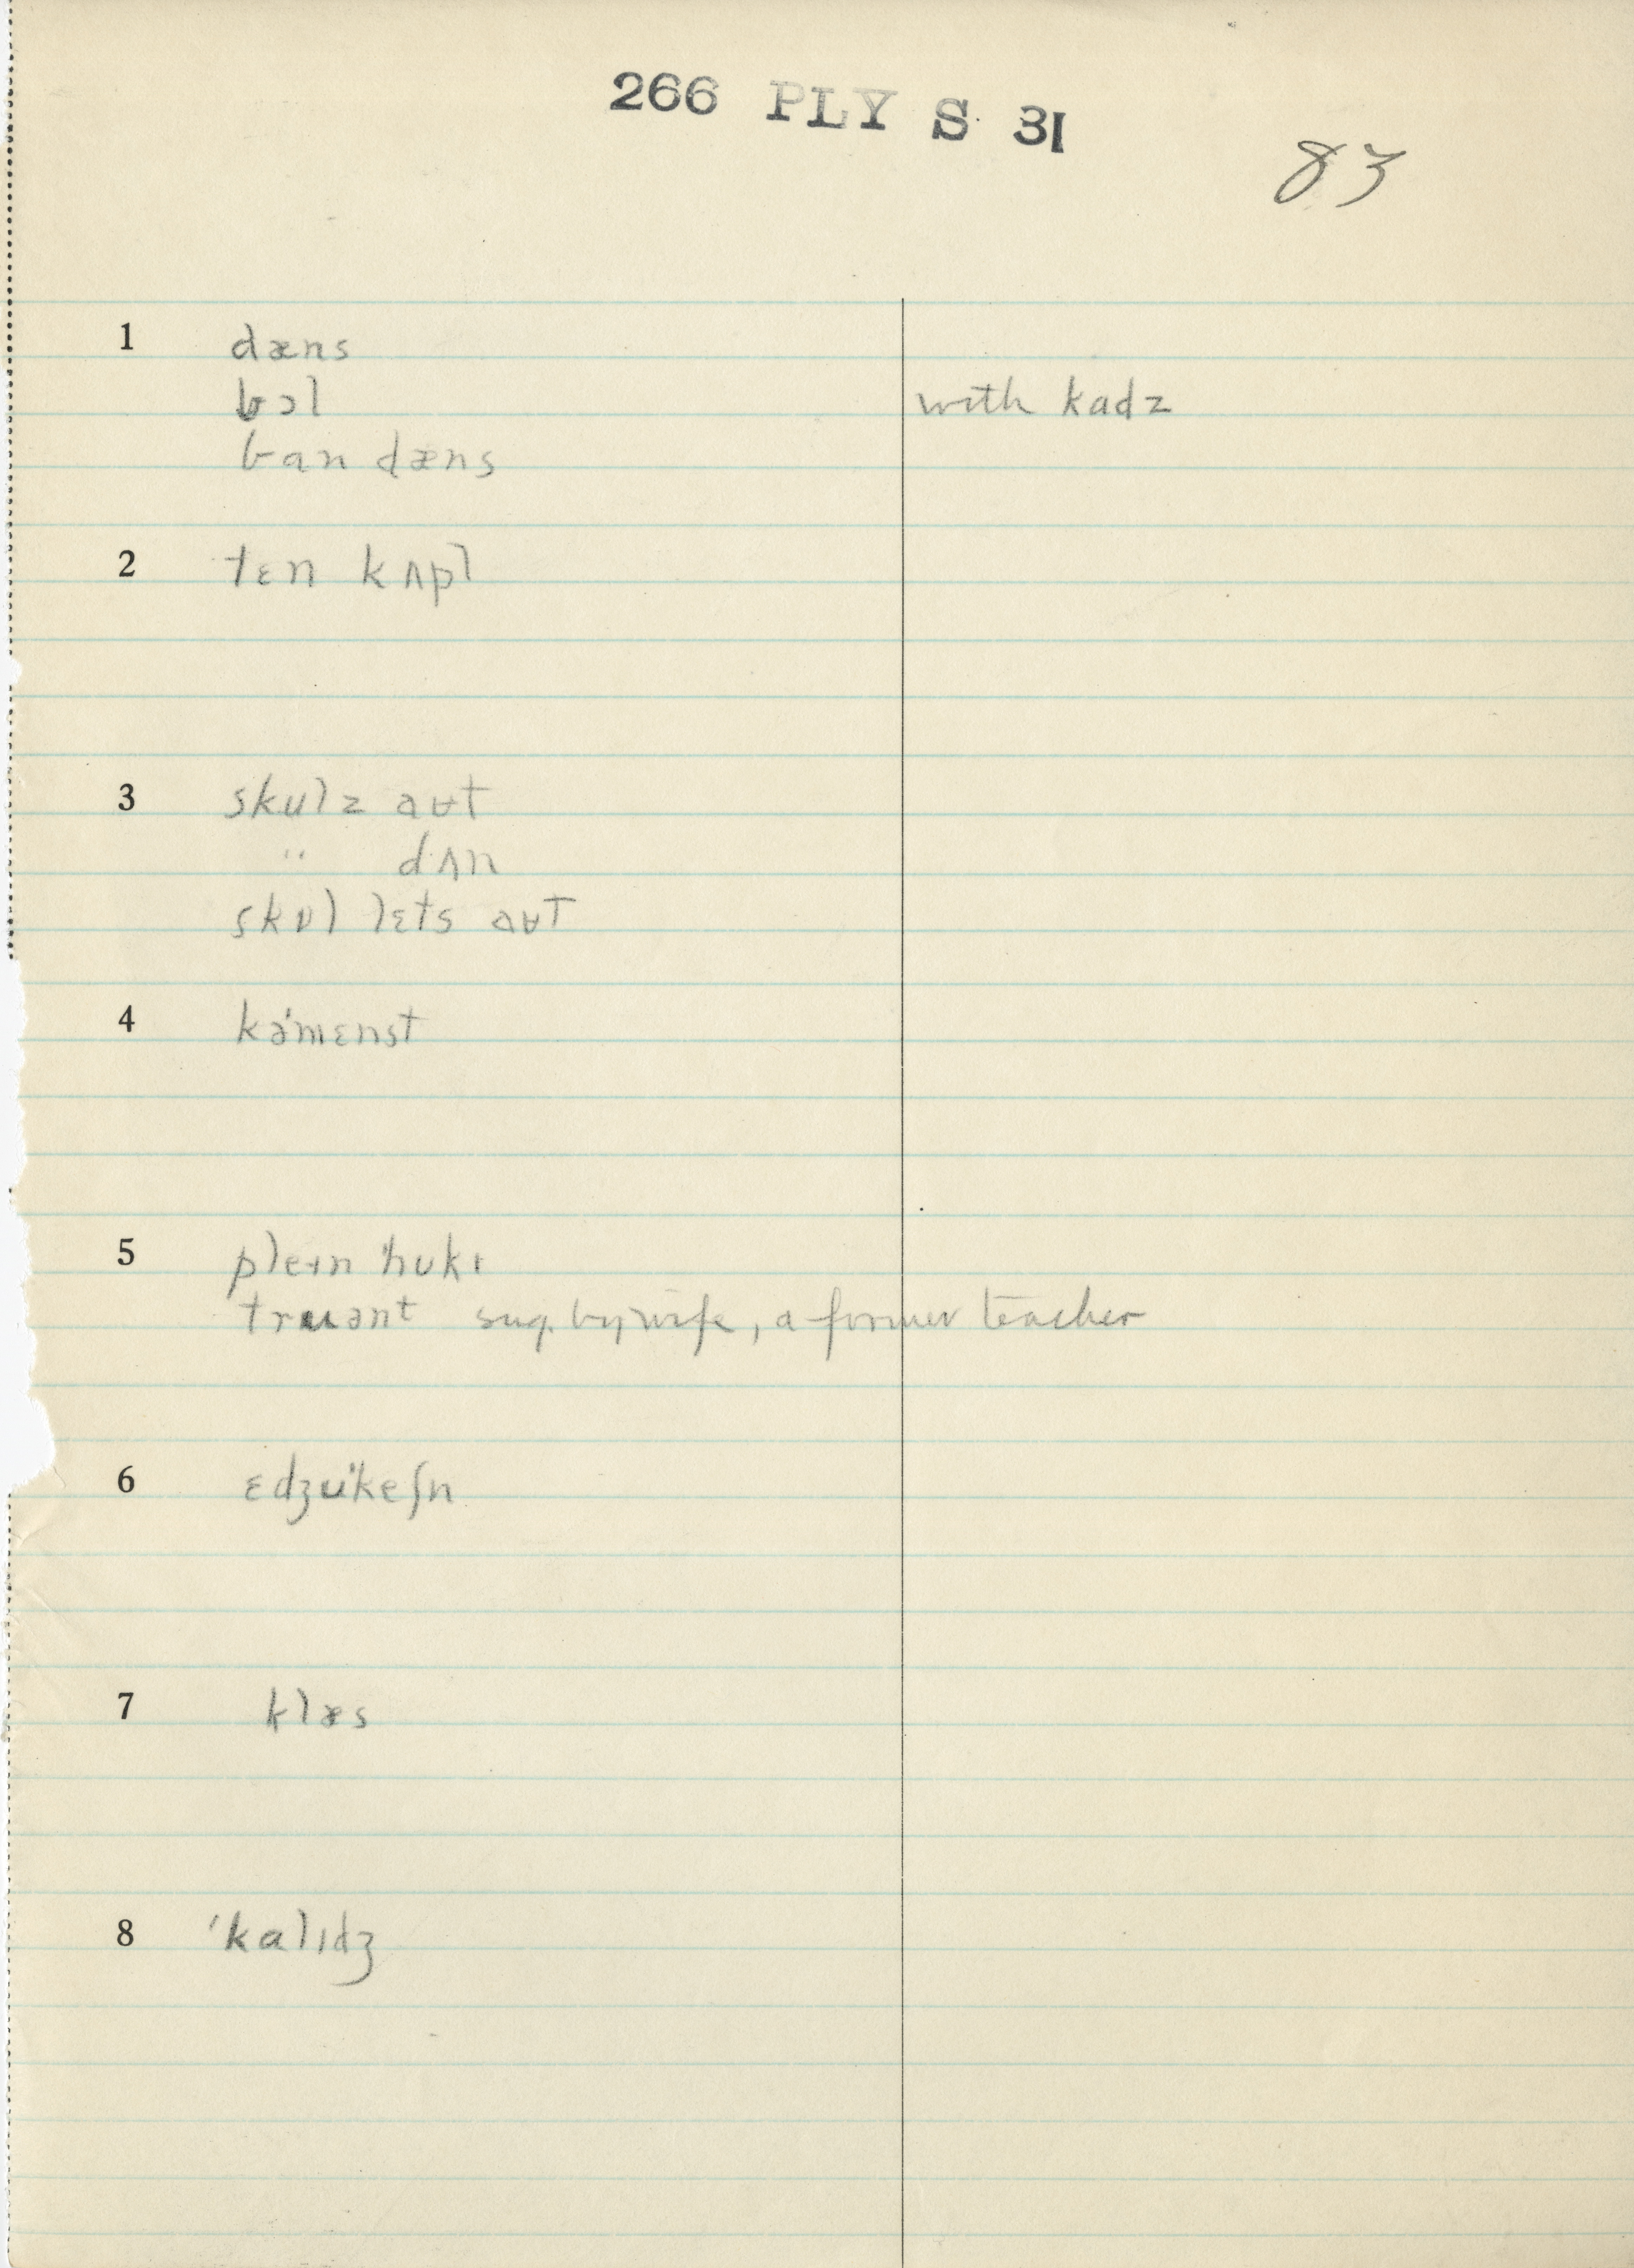 266 PLY S 31
83
1 dæns
bɔl with kadz
ban dæns
2 tɛn kʌpl
3 skulz aʊt
" dʌn
skʊl lɛts aʊt
4 kə'mɛnst
5 pleɪn 'hʊkɪ
truənt sug. by wife, a former teacher
6 ɛdʒu'keʃn
7 klæs
8 'kalɪdʒ